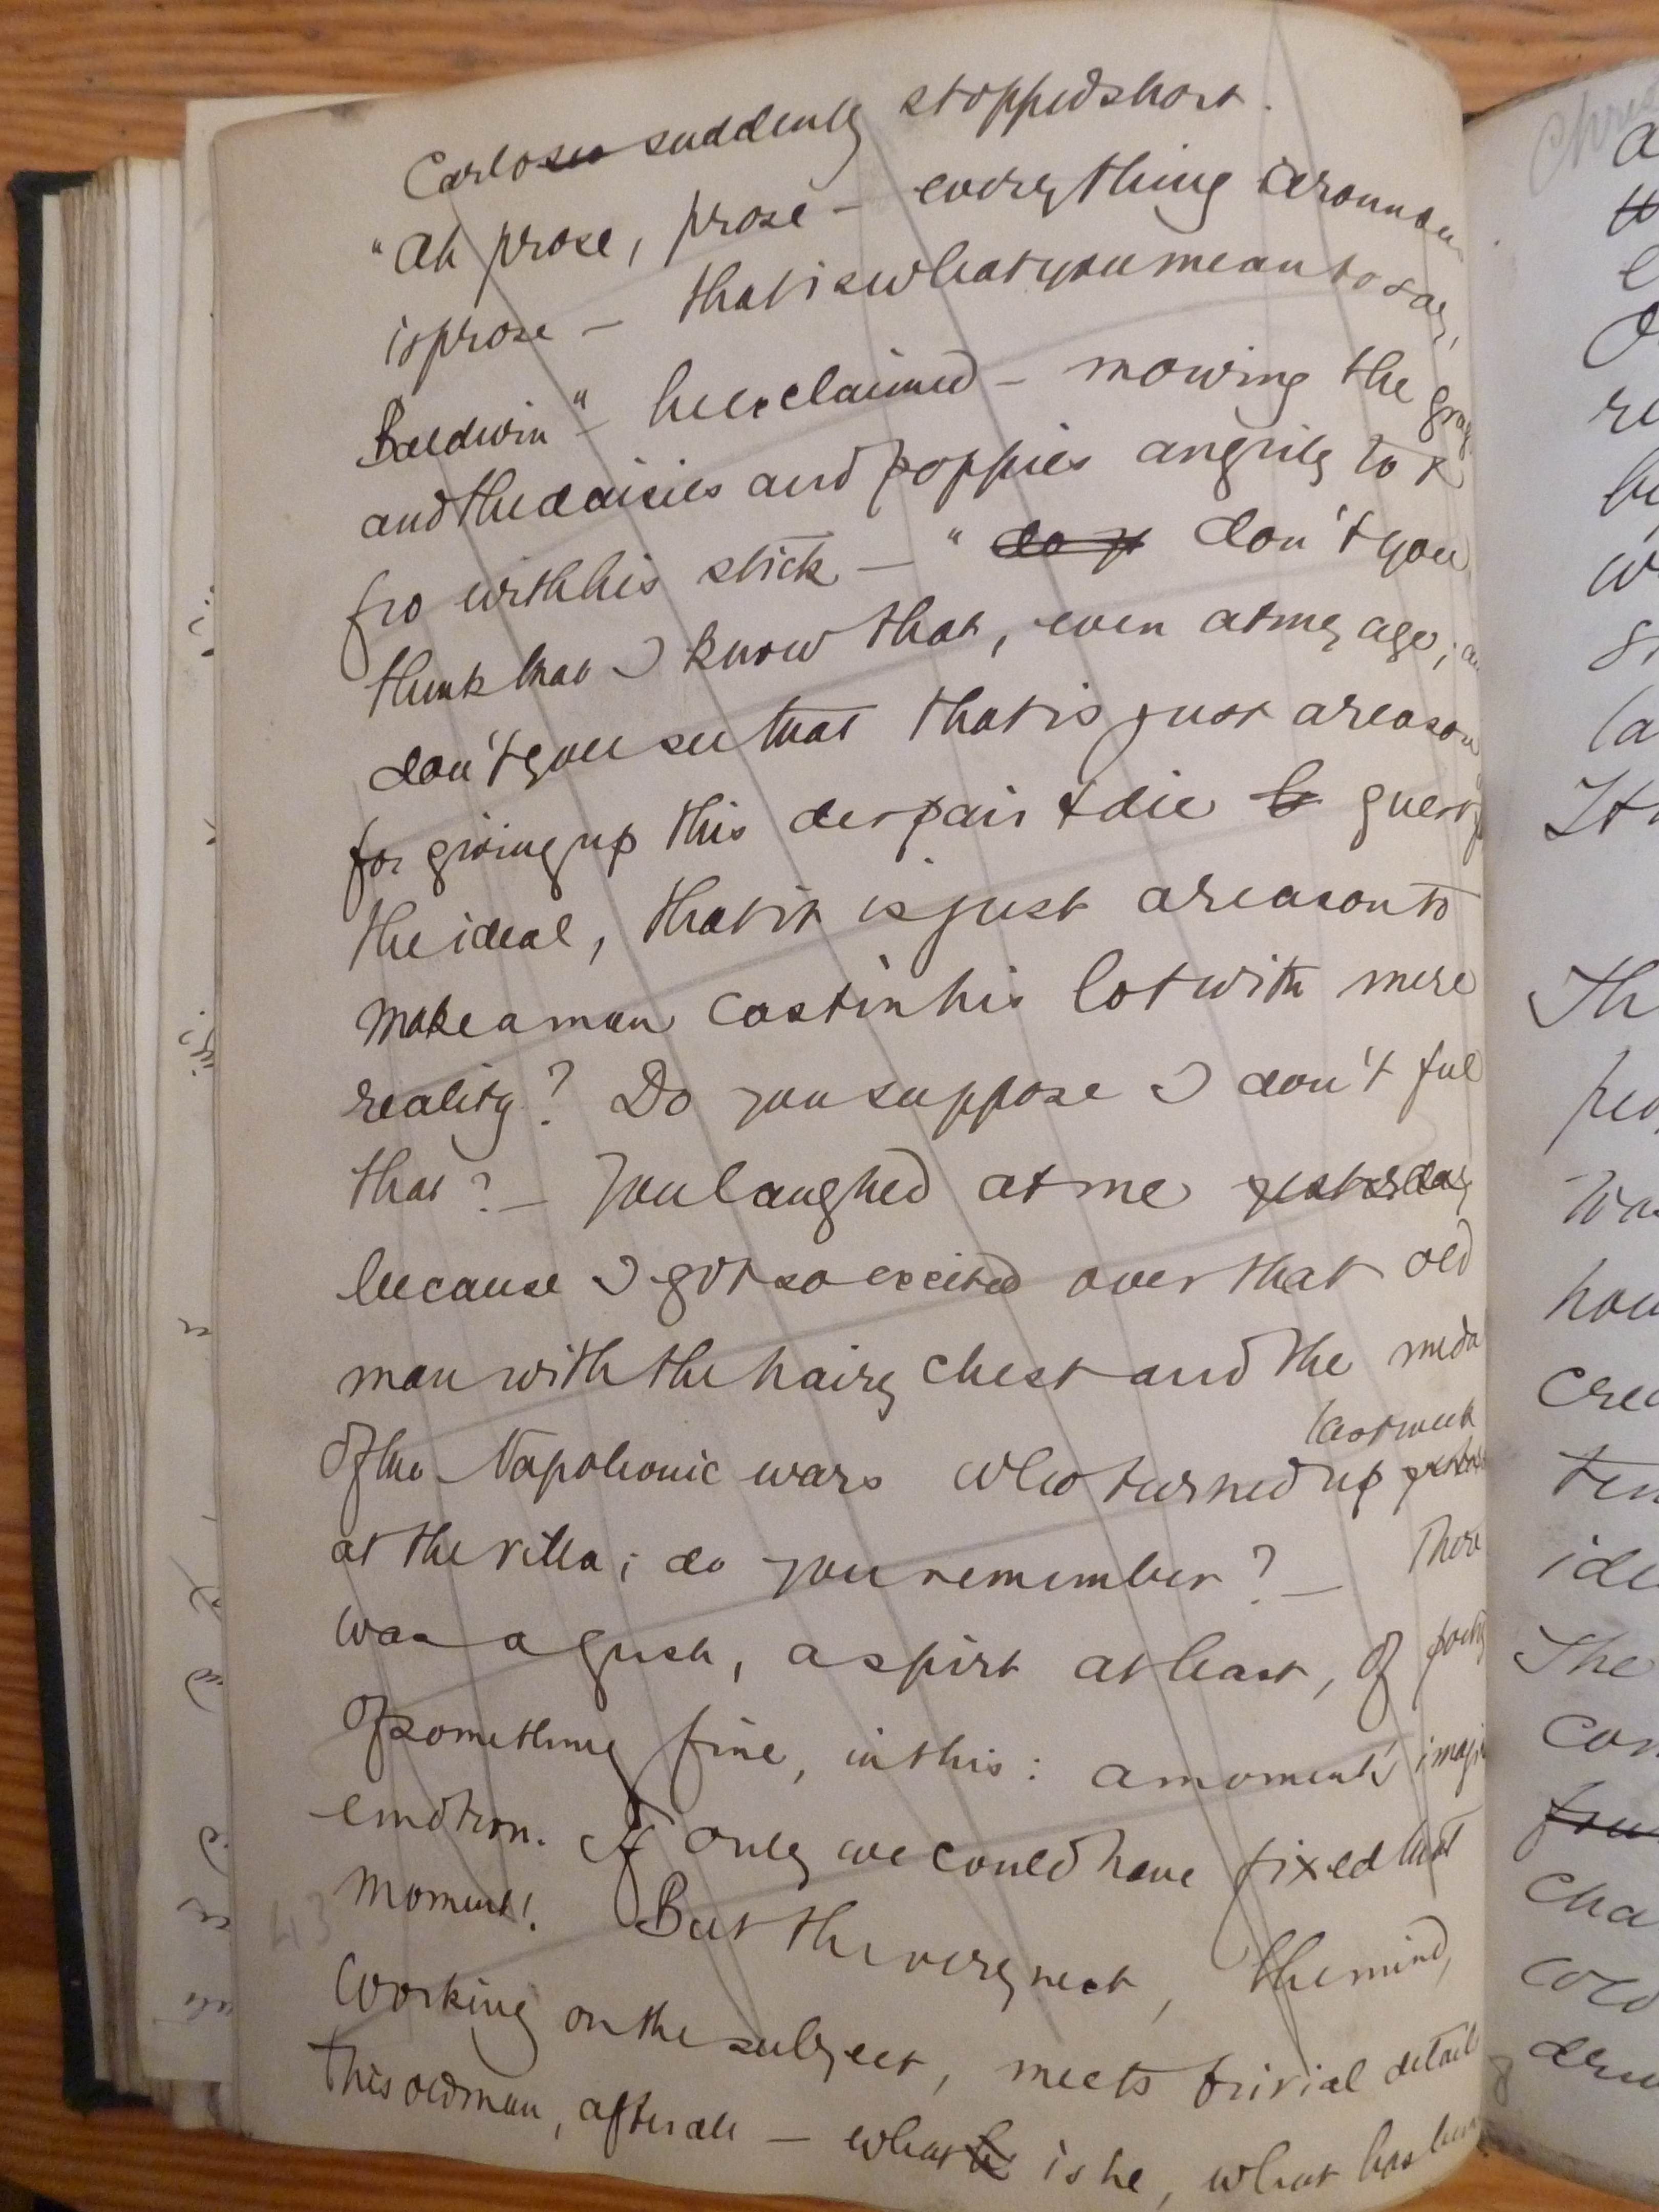 Carlo suddenly stopped short.
"Ah prose, prose – everything around
is prose – that is what you mean to say,
Baldwin" – he exclaimed – mowing the grass
and the daisies and poppies angrily to &
fro with his stick – " don't you
think that I know that, even at my age;
don't you see that that is just a reason
for giving up this despair & die
the ideal, that it is just a reason to
make a man cast in his lot with mere
reality? Do you suppose I don't feel
that? – You laughed at me yesterday
because I got so excited over that old
man with the hairy chest and the
last week
of the Napoleonic wars who turned up
at the villa; do you remember? – There
was a gush, a spirt at least, of
of something fine, in this: a moment's
emotion. If only we could have fixed that
moment! But the very next, the mind,
43
working on the subject, meets trivial details
this old man, after all – what is he, what has been